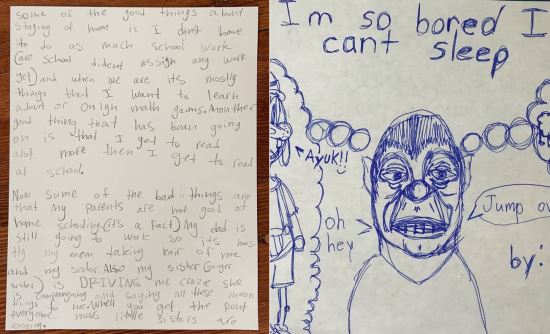 some of the good things about
staying at home is I don't have
to do as much school work
(are school dident assign any work
yet) and when we are its mostly
things that I want to learn
about or onlyn math gaims. Anonther
good thing that has bean going
on is that I get to read
alot more then I get to read
at school.
Now sume of the bad things are
that My parents are not good at
home schooling (it's a fact) My dad is
still going to work so its
my mom taking kair of me
and my sister. Also my sister
sister) is DRIVING me craze she
is complangning and saying all these mean
things to me. When you get the point
everyone miss little sisters are
anoying.
Im so bored I
cant sleep
Ayuk!!
oh
hey
Jump ov
by: